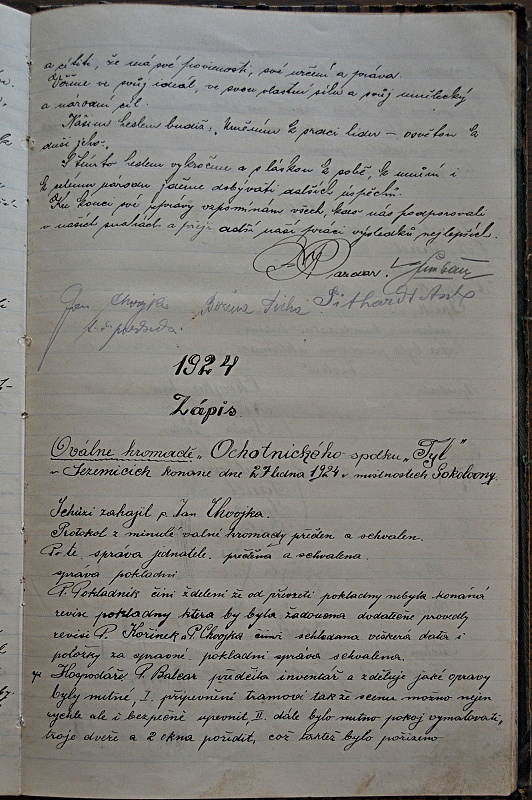 a cítiti, že má své povinnosti, své určení a práva.
Věřme ve svůj ideál, ve svou vlastní sílu a svůj umělecký
a národní cíl.
Naším heslem budiž: „Uměním k srdci lidu – osvětou k
duši jeho".
S tímto heslem vykročme a s láskou k sobě, k umění i
k celému národu jděme dobývati dalších úspěchů.
Ku konci své zprávy vzpomínám všech, kdo nás podporovali
v našich snahách a přeji další naší práci výsledků nejlepších.
Nazdar!
Jan Chvojka Božena Tichá Sithardt Ant.
t. č. předseda.
1924
Zápis.
O valné hromadě „Ochotnického spolku „Tyl"
v Sezemicích konané dne 27 ledna 1924 v místnostech Sokolovny.
Schůzi zahájil p. Jan Chvojka.
Protokol z minulé valné hromady přečten a schválen.
Po té, správa jednatele, přečtěna a schválena.
správa pokladní
P. Pokladník činí zdělení že od převzetí pokladny nebyla konáná
revise pokladny která by byla žádoucna dodatečně provedly
revisi P. Kořínek a P. Chvojka čímž schledána věškerá data i
položky za správné pokladní správa schválena.
Hospodář P. Balcar předčítá inventář a zděluje jaké opravy
byly nutné, I. připevnění trámoví takže scenu možno nejen
rychle ale i bezpečně upevnit, II. dále bylo nutno pokoj vymalovati,
troje dveře a 2 okna pořídit, což taktéž bylo pořízeno